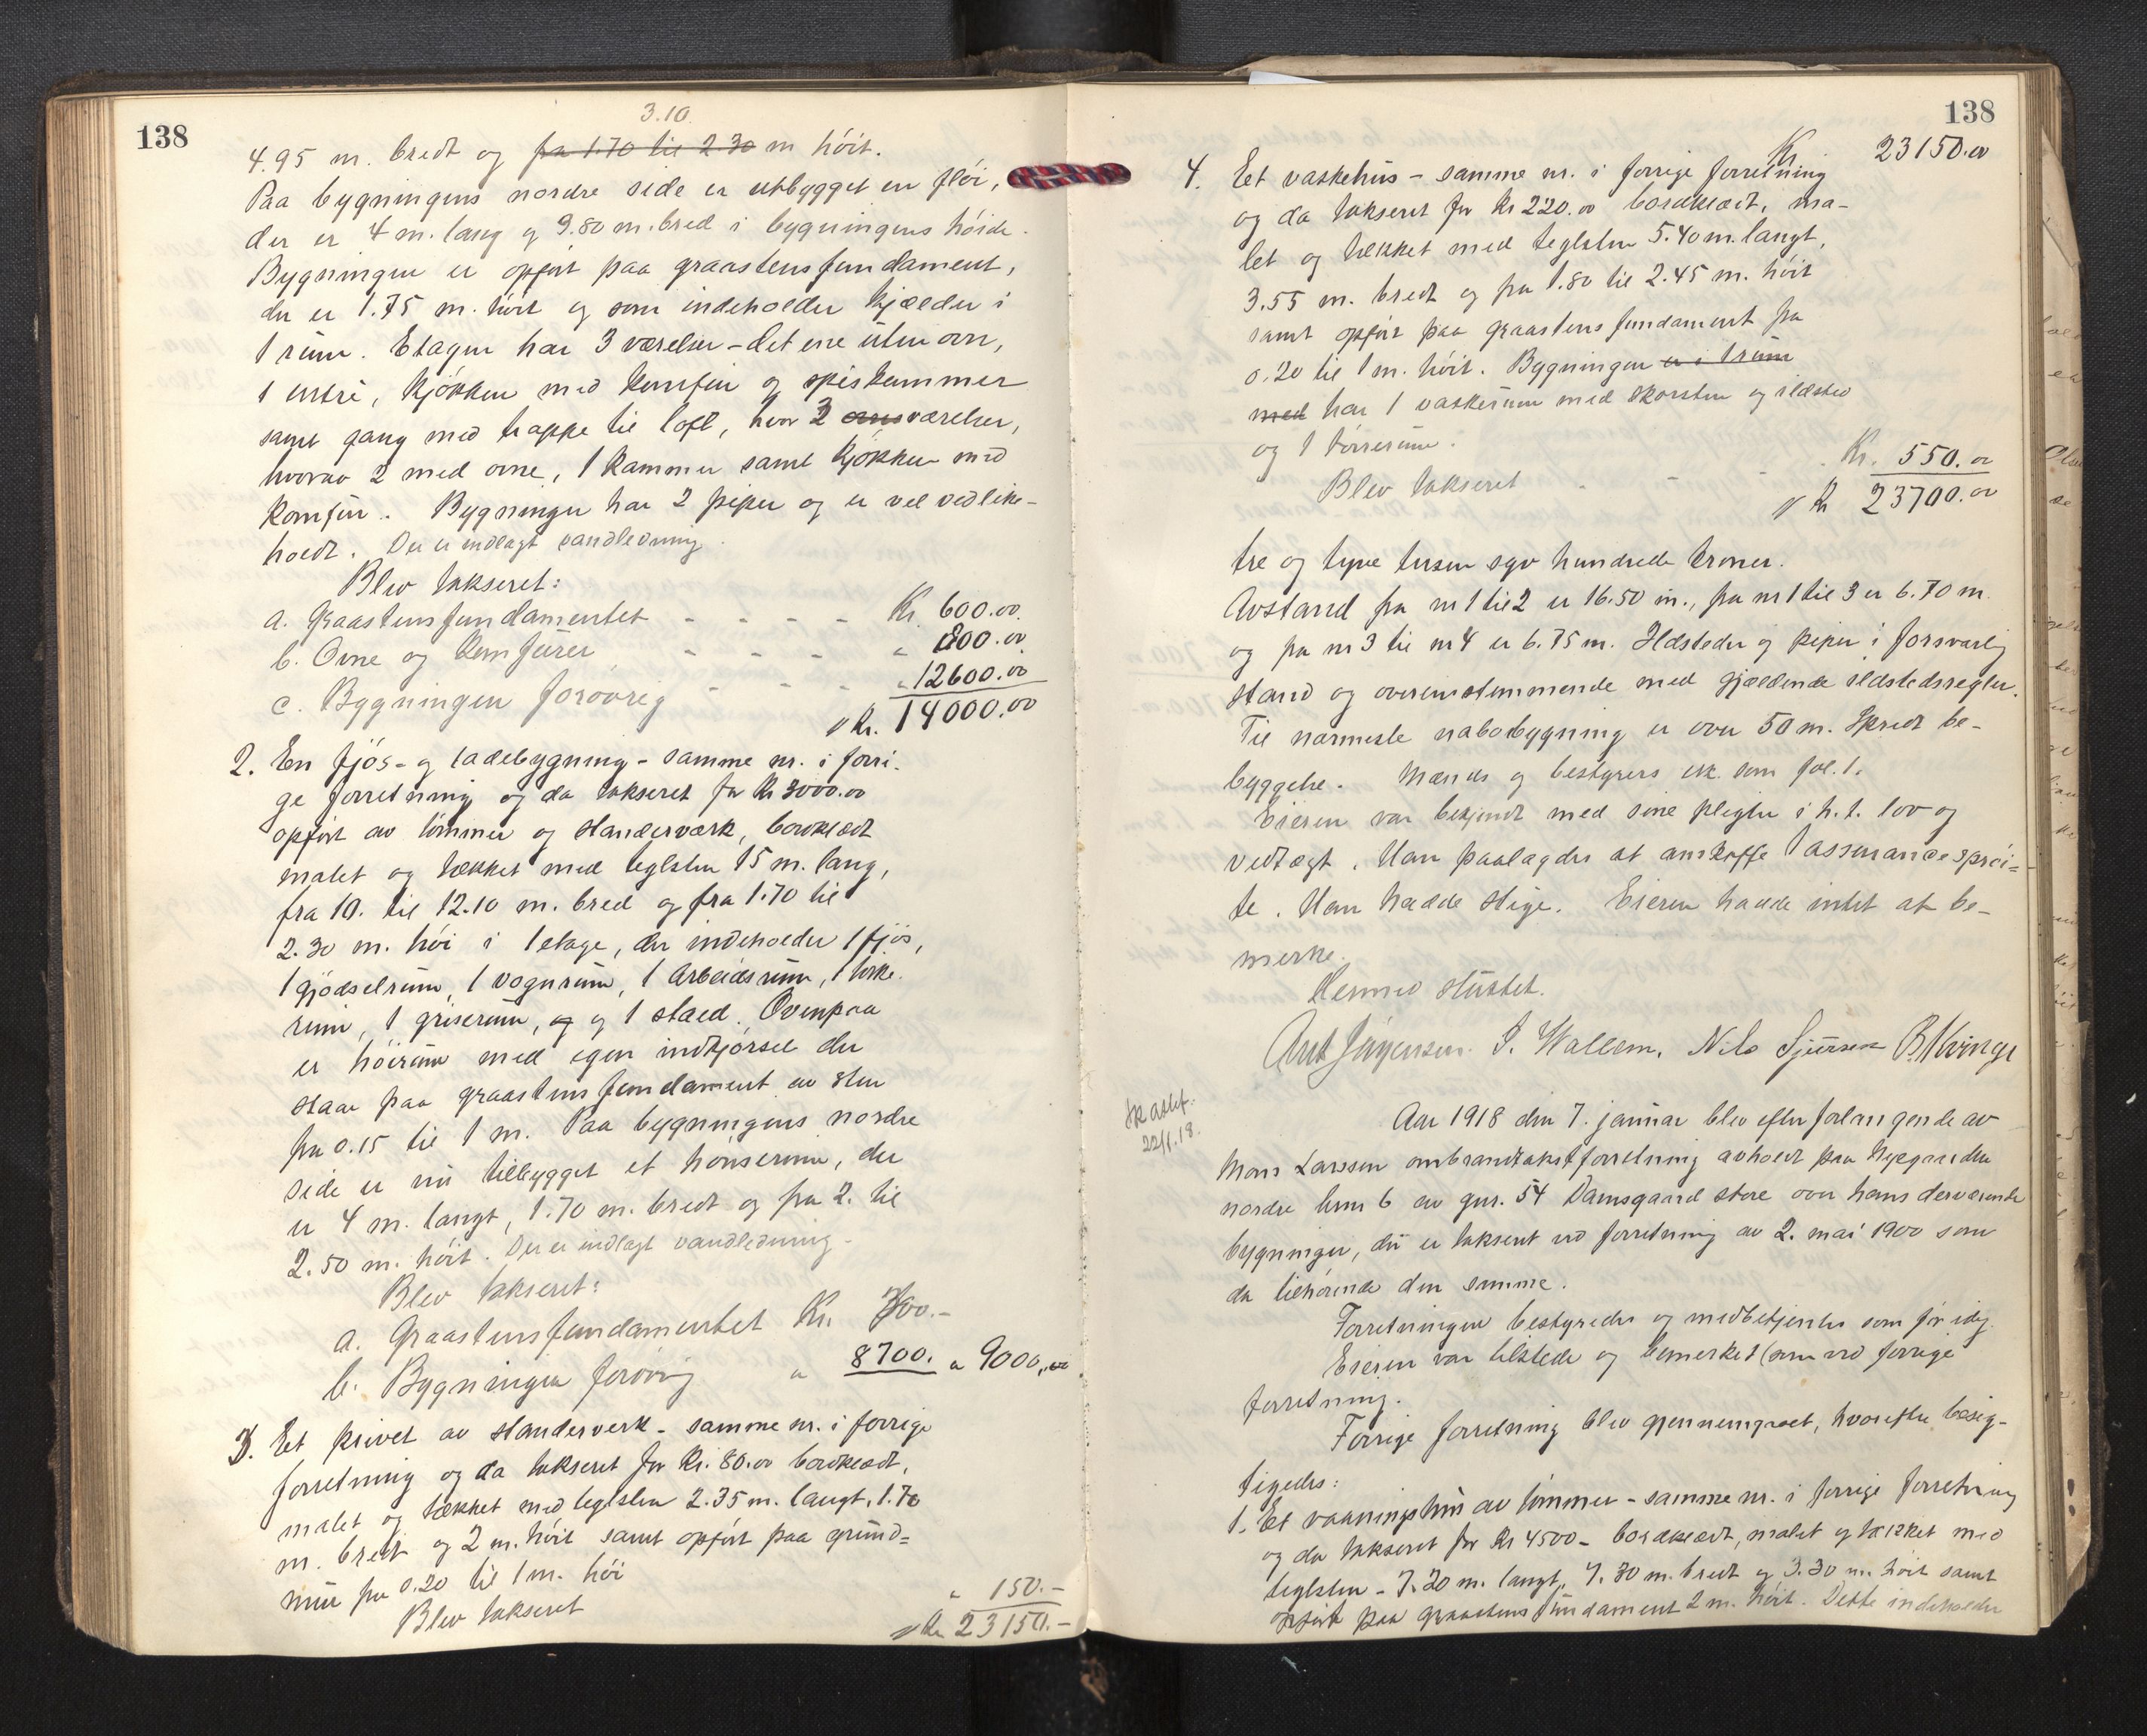 138
3.10.
4.95 m. bredt og fra 1.70 til 2.30 m høit.
Paa bygningens nordre side er utbygget en fløi,
der er 4 m. lang og 9.80 m. bred i bygningens høide.
Bygningen er opført paa graastensfundament,
der er 1.75 m. høit og som indeholder kjælder i
1 rum. Etagen har 3 værelser - det ene uten ovn,
1 entre, kjøkken med komfur og spiskammer
samt gang med trappe til loft, hvor 3 værelser,
hvorav 2 med ovne, 1 kammer samt kjøkken med
komfur. Bygningen har 2 piper og er vel vedlike-
holdt. Der er indlagt vandledning.
Blev takseret:
a. Graastensfundamentet - - - - Kr. 600.00
b. Ovne og komfurer - - - " 800.00
c. Bygningen forøvrig - - - " 12600.00
// Kr. 14000.00
2. En fjøs- og ladebygning - samme nr. i forri-
ge forretning og da takseret for Kr 3000.00
opført av tømmer og standerværk, bordklædt
malet og tækket med teglsten 15 m. lang,
fra 10. til 12.10 m. bred og fra 1.70 til
2.30 m. høi i 1 etage, der indeholder 1 fjøs,
1 gjødselrum, 1 vognrum, 1 arbeidsrum, 1 tørke-
rum, 1 griserum, og og 1 stald. Ovenpaa
er høirum med egen indkjørsel der
staar paa graastensfundament av sten
fra 0.15 til 1 m. Paa bygningens nordre
side er nu tilbygget et hønserum, der
er 4 m. langt, 1.70 m. bredt og fra 2. til
2.50 m. høit. Der er indlagt vandledning.
Blev takseret:
a. Graastensfundamentet Kr. 300.-
b. Bygningen forøvrig " 8700. " 9000.00
3. Et privet av standerverk - samme nr. i forrige
forretning og da takseret for Kr. 80.00 bordklædt,
malet og tækket med teglsten 2.35 m. langt, 1.70
m. bredt og 2 m. høit samt opført paa grund=
mur fra 0.20 til 1 m. høi
Blev takseret " 150.-
// Kr 23150.-
138
Kr. 23150.00
4. Eet vaskehus - samme nr. i forrige forretning
og da takseret for Kr 220.00 bordklædt, ma-
let og tækket med teglsten 5.40 m. langt,
3.55 m. bredt og fra 1.80 til 2.45 m. høit
samt opført paa graastensfundament fra
0.20 til 1 m. høit. Bygningen er i 1 rum
med har 1 vaskerum med skorsten og ildsted
og 1 tørrerum.
Blev takseret - - - Kr. 550.00
// Kr 23700.00
tre og tyve tusen syv hundrede kroner.
Avstand fra nr 1 til 2 er 16.50 m., fra nr 1 til 3 er 6.70 m.
og fra nr 3 til nr 4 er 6.75 m. Ildsteder og piper i forsvarlig
stand og overensstemmende med gjældende ildstedsregler.
Til nærmeste nabobygning er over 50 m. Spredt be-
byggelse. Mænds og bestyrers erk. som fol. 1.
Eieren var bekjendt med sine pligter i h. t. lov og
vedtægt. Han paalagdes at anskaffe 1 assurancesprøi=
te. Han hadde stige. Eieren hadde intet at be-
merke.
Dermed sluttet.
Ant Jørgensen. S. Wallem. Nils Sjursen B. Kvinge
22/1.18.
Aar 1918 den 7. januar blev efter forlangende av
Mons Larssen ombrandtakstforretning avholdt paa Nygaarden
nordre brnr 6 av gnr. 54 Damsgaard store over hans derværende
bygninger, der er takseret ved forretning av 2. mai 1900 som
da tilhørende den samme.
Forretningen bestyredes og medbetjentes som før idag.
Eieren var tilstede og bemerket som ved forrige
forretning.
Forrige forretning blev gjennemgaaet, hvorefter besig-
tigedes:
1. Et vaaningshus av tømmer - samme nr. i forrige forretning
og da takseret for Kr 4500 - bordklædt, malet og tækket med
teglsten - 7.20 m. langt, 7.30 m. bredt og 3.30 m. høit samt
opført paa graastensfundament 2 m. høit. Dette indeholder